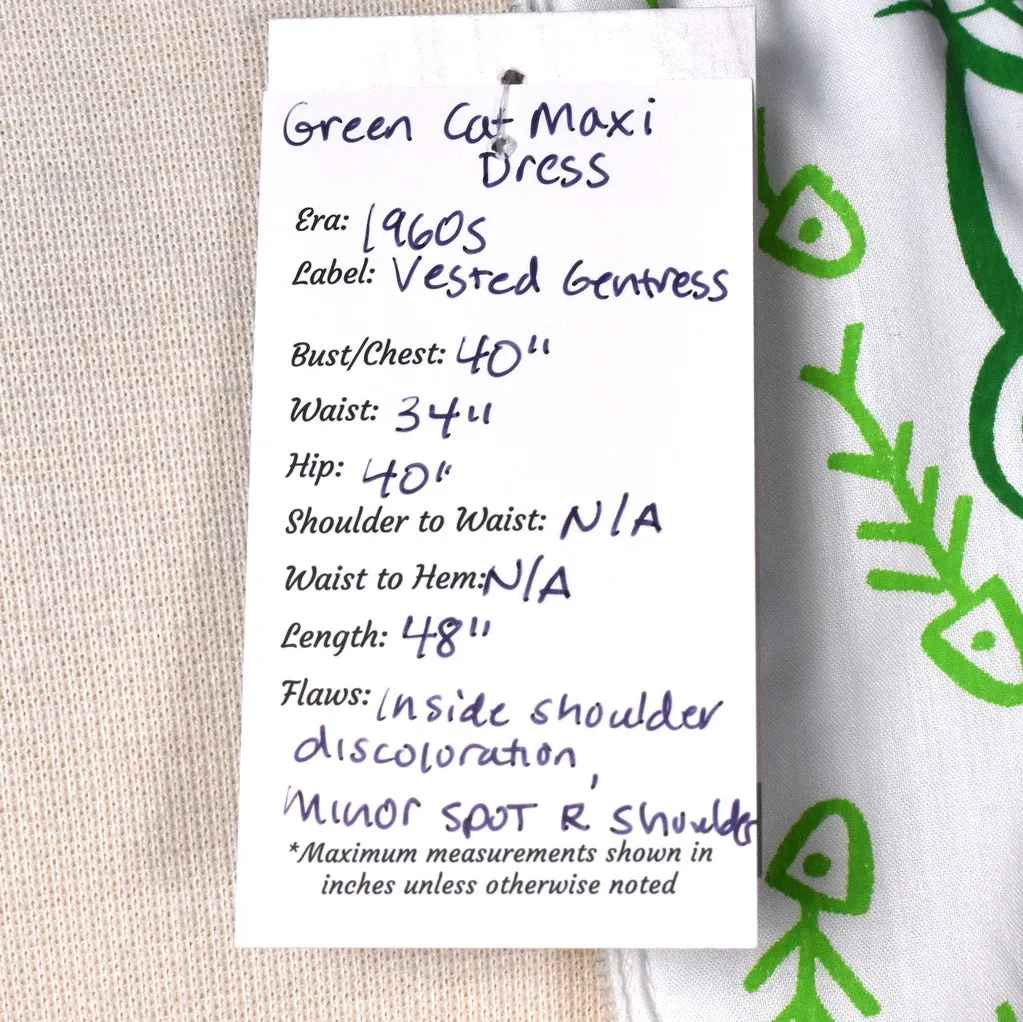 Green Cat Maxi
Dress
Era: 1960s
Label: Vested Gentress
Bust/Chest: 40"
Waist: 34"
Hip: 40"
Shoulder to Waist: N/A
Waist to Hem: N/A
Length: 48"
Flaws: Inside shoulder
discoloration,
Minor SPOT R shoulder
*Maximum measurements shown in
inches unless otherwise noted